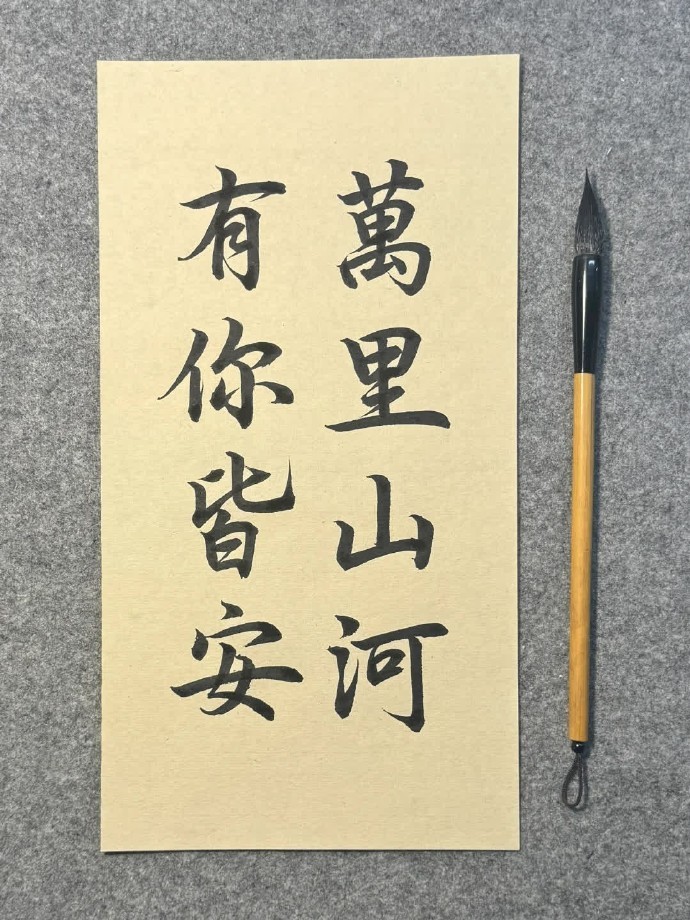 萬里山河
有你皆安